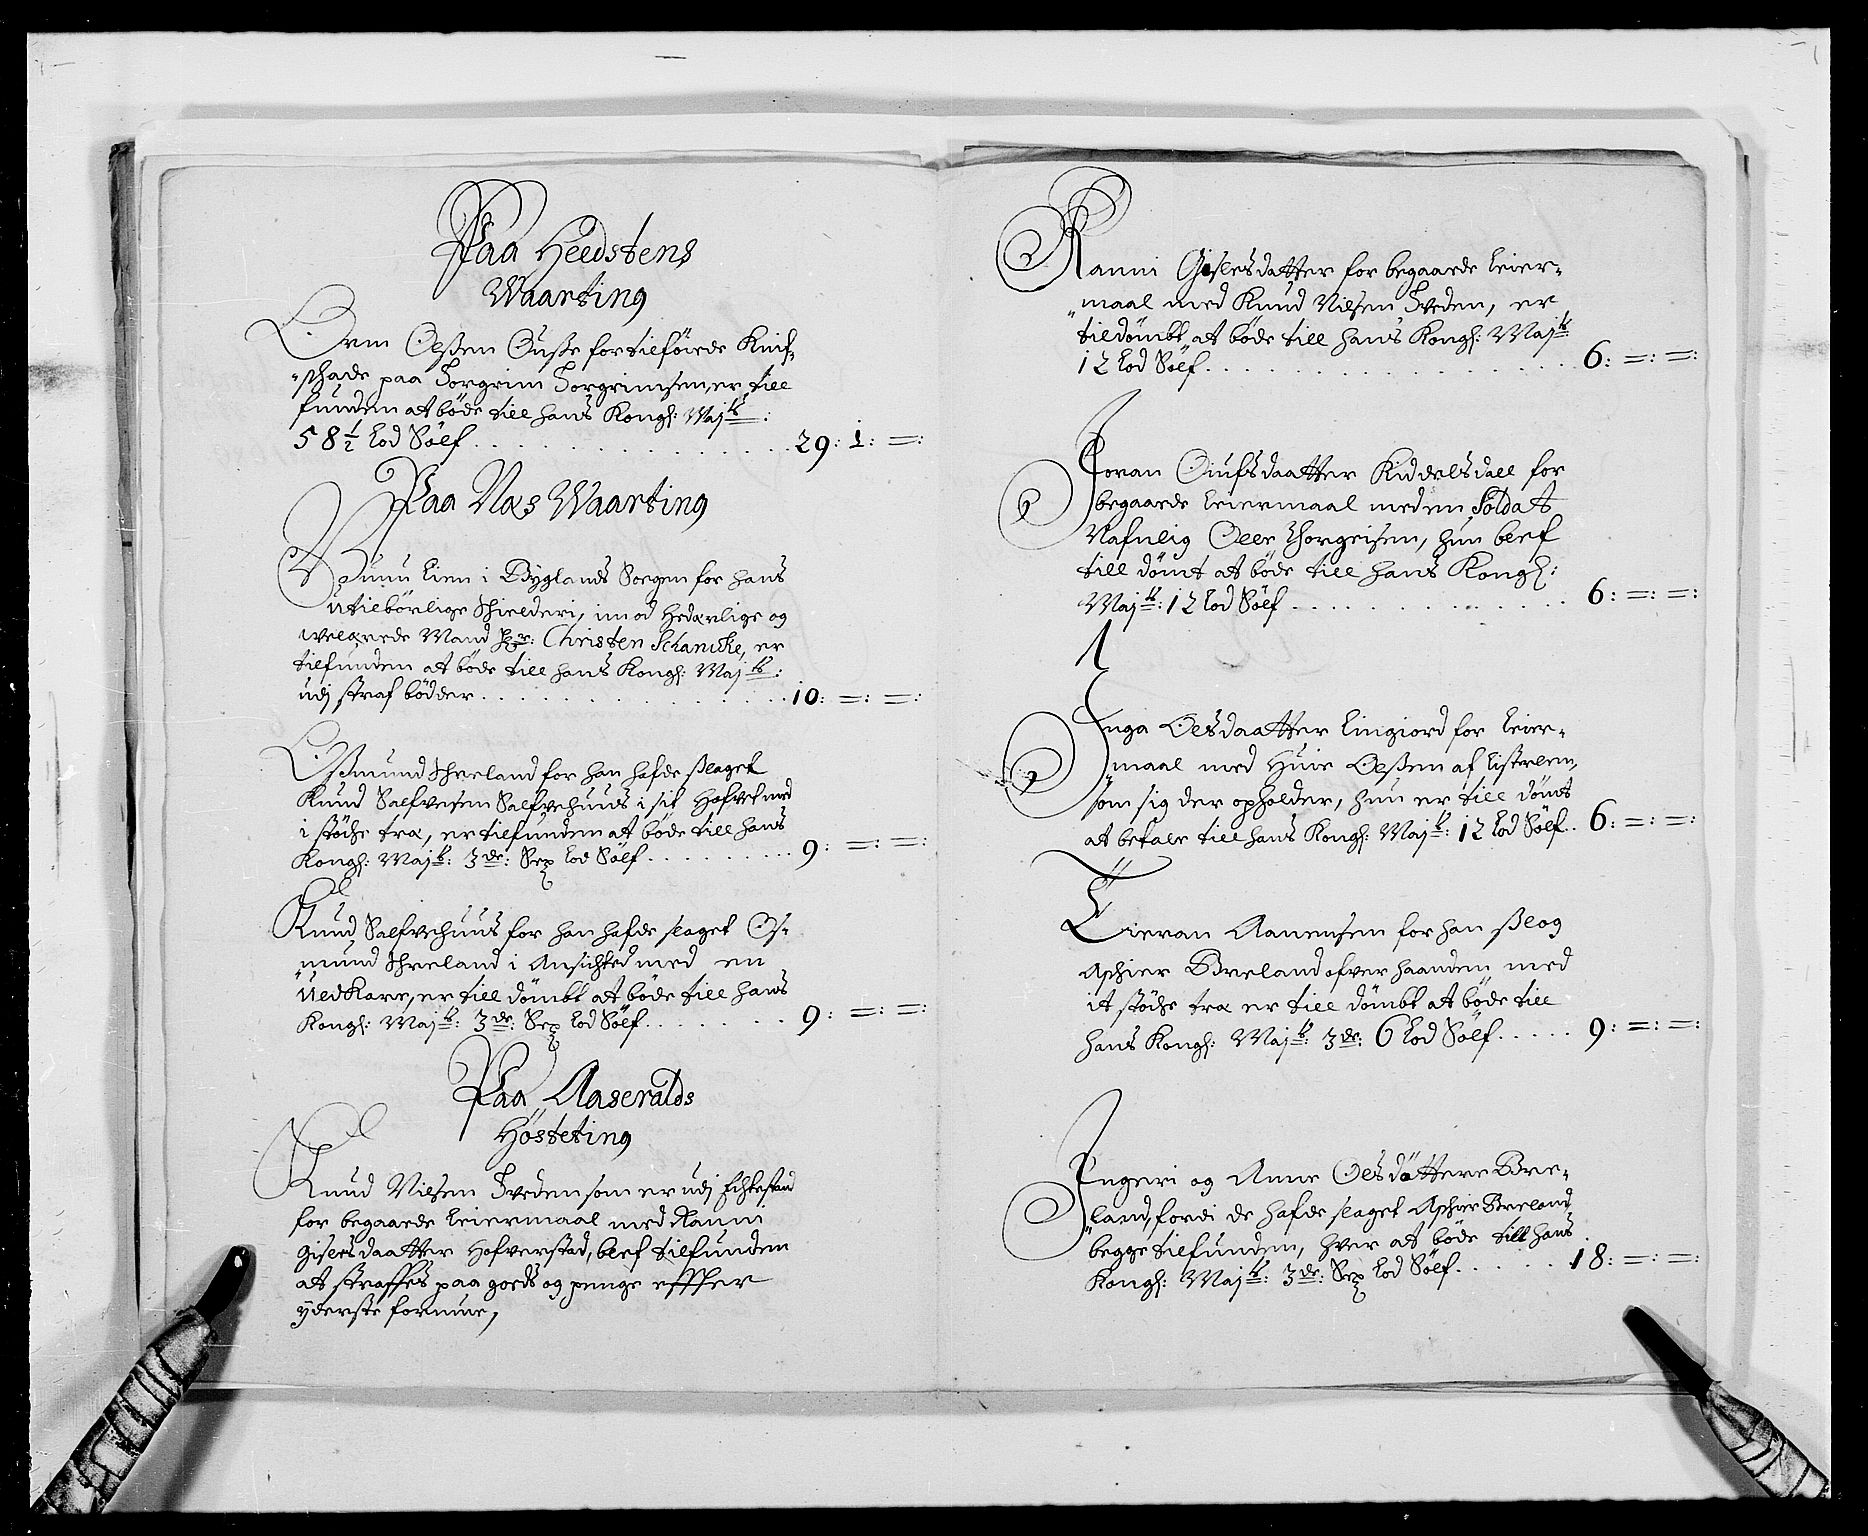 Paa Heedstens
Waarting
Orm Olßen Ouße for tilföiede Knif-
schade paa Torgrim Torgrimsen, er till
funden at böde till hans Kongl: Majts:
58½ Lod Sölf . . . . . . . . . . 29: 1: =:
Paa Næs Waarting
Gunu Lien i Byglands Sogen for hans
utilbörlige Skielderi, imod Hederlige og
welærede Mand Hr: Christen Schancke, er
tilfunden at böde till hans Kongl: Majts:
udj straf bödder . . . . . . . . . . 10: =: =:
Oßmund Skreland for han hafde ßlaget
Knud Salfvesen Salfvehuus i sit Hofvet med
i støche træ, er tilfunden at böde till hans
Kongl: Majts: 3de: Sex Lod Sölf . . . . . . . . 9: =: =:
Knud Salfvehuus for han hafde slaget Os-
mund Skreland i Ansichted med en
Uedkare, er till dömbt at böde till hans
Kongl: Majts: 3de: Sex Lod Sölf . . . . . . . 9: =: =:
Paa Aaseralds
Hösteting
Knud Nilsen Sveden som er udj Echtestand
for begaarde Leiermaal med Ranni
Gislesdaatter Hofverstad, blef tilfunden
at straffes paa goeds og penge effther
yderste formue,
Ranni Gislesdatter for begaarde Leier-
maal med Knud Nilsen Sveden, er
tildömbt at böde till hans Kongl: Majts:
12 Lod Sölf . . . . . . . . . . 6: =: =:
Joran Oiufsdaatter Kiddelsdall for
begaarde Leiermaal med en Soldat
Nafnlig Olle Thorgeisen, hun blef
till dömt at böde till hans Kongl:
Majts: 12 Lod Sölf . . . . . . . . . . 6: =: =:
Inga Olsdaatter Lingiord for Leier-
maal med Huie Olßen af
som sig der opholder, hun er till dömt
at betale till hans Kongl: Majts: 12 Lod Sölf . . 6: =: =:
Tieran Aanensen for han ßlog
Aschier Breland ofver haanden med
it støche træ er till dömbt at böde till
hans Kongl: Majts: 3de: 6 Lod Sölf . . . . . 9: =: =:
Ingeri og Anne Olsdöttere Bre-
land, fordi de hafde slaget Aschier Breland,
begge tilfunden, hver at böde till hans
Kongl: Majts: 3de: Sex Lod Sölf . . . . . . 18: =: =: